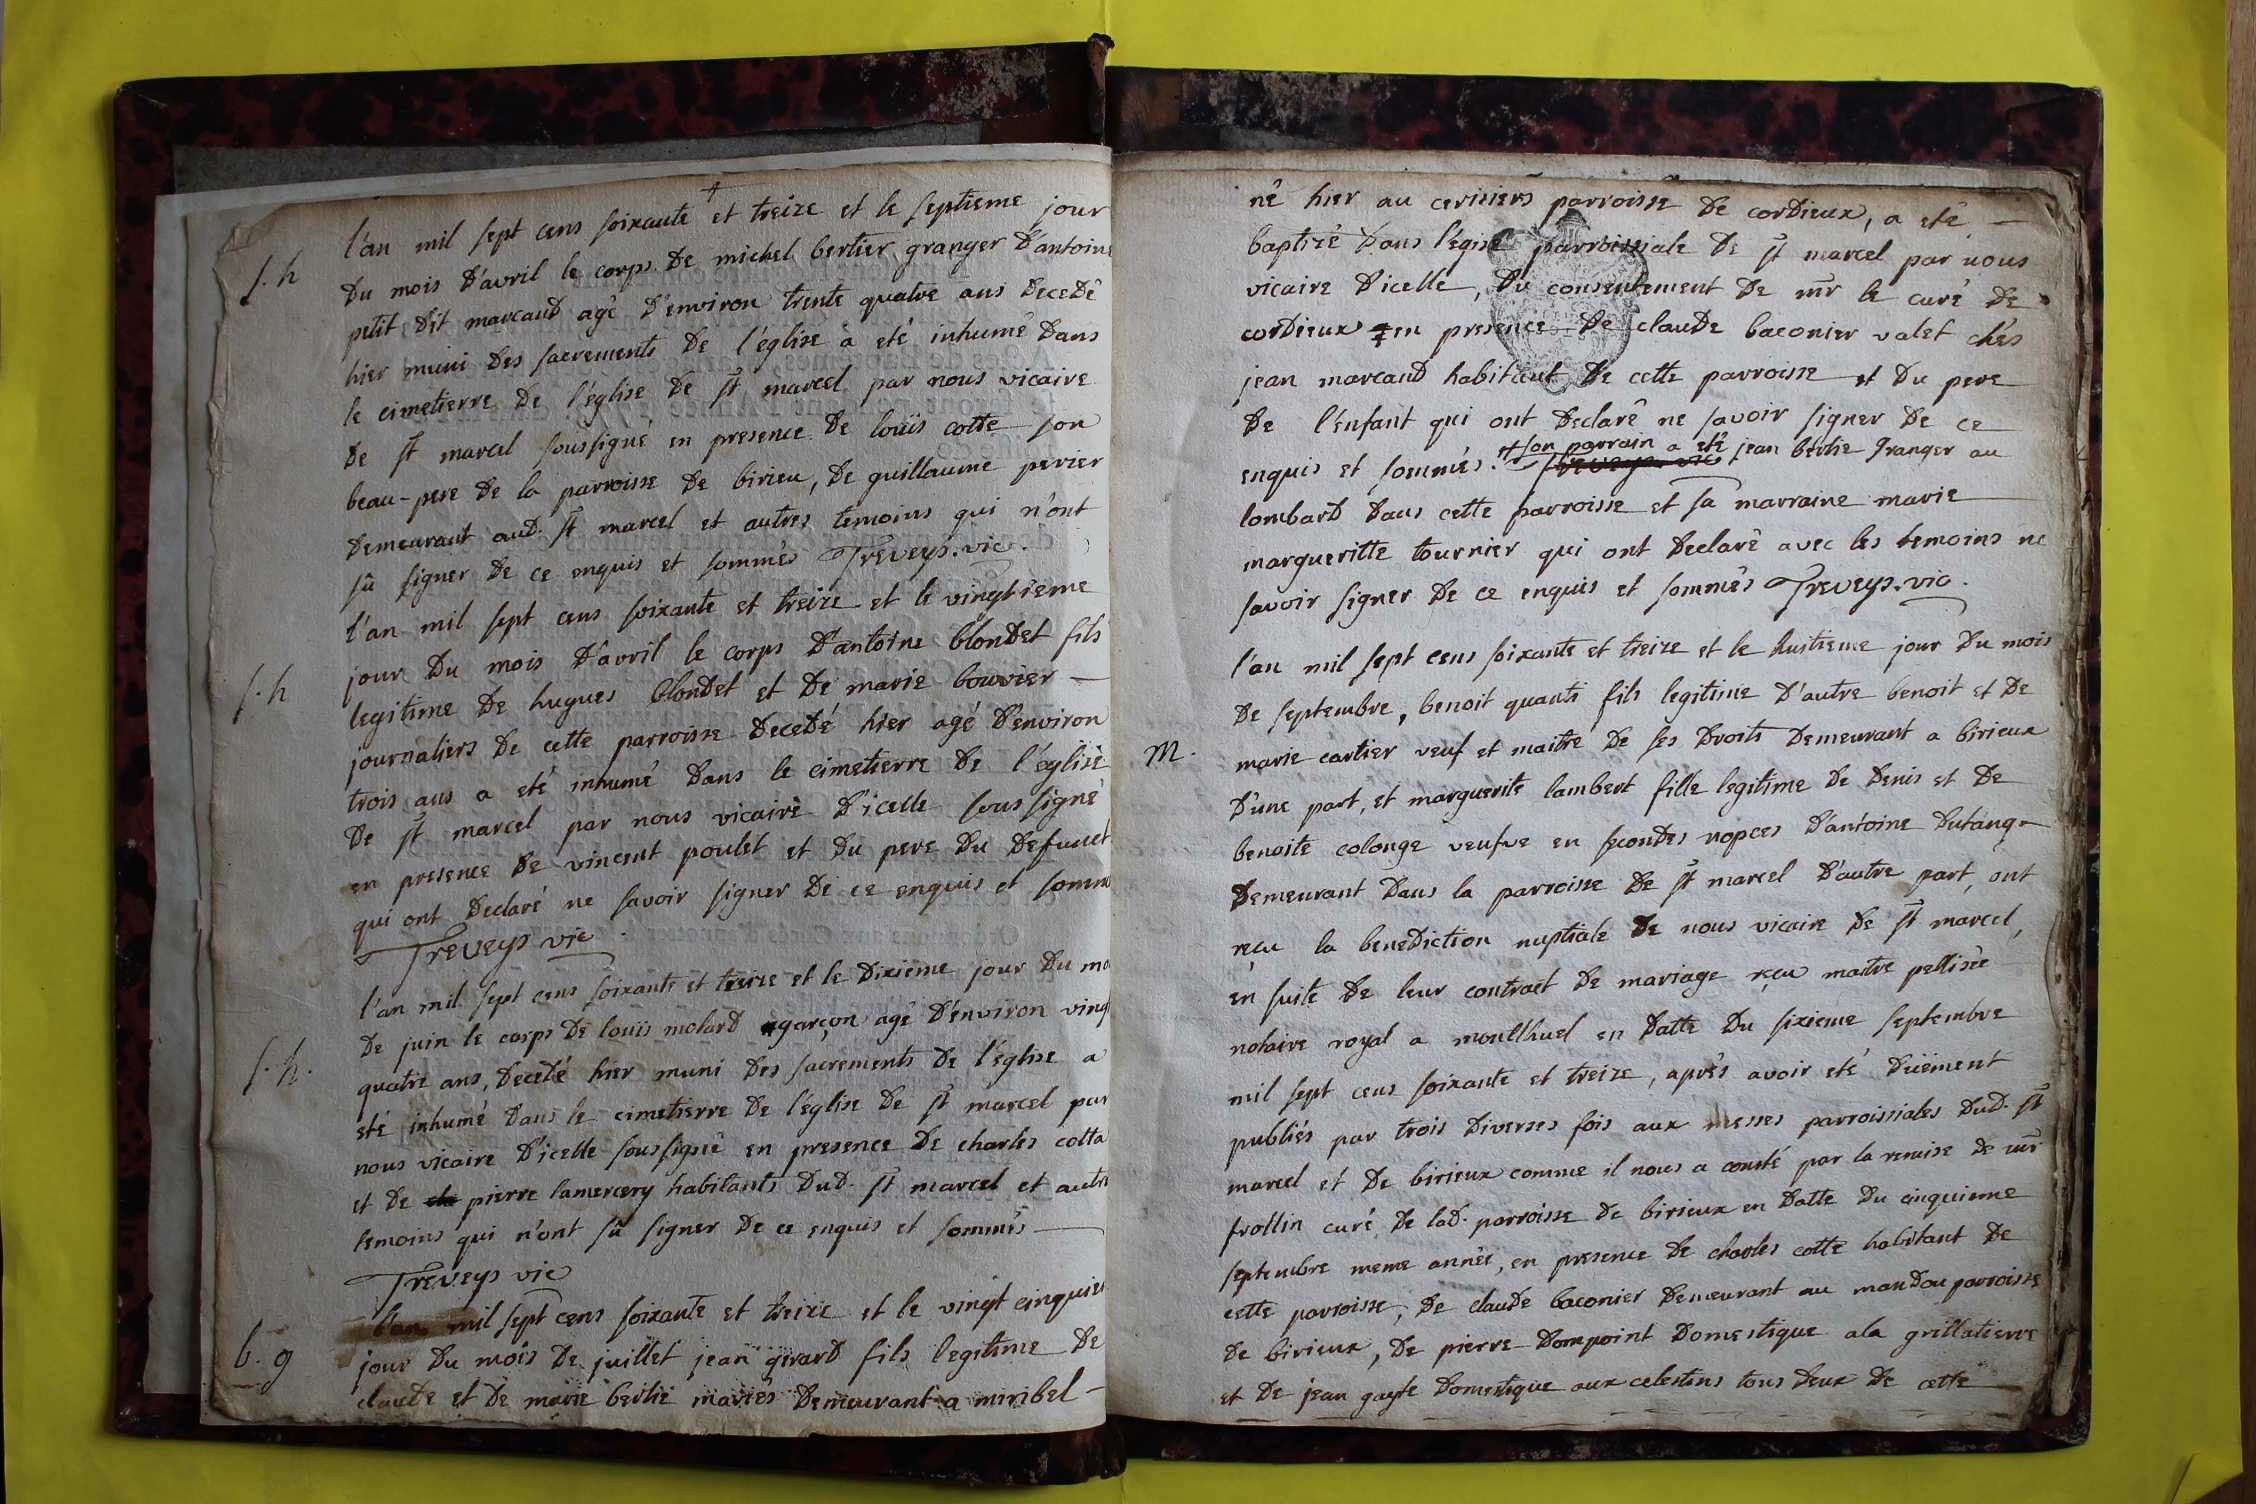 l'an mil sept cens soixante et treize et le septieme jour
s. h
du mois d'avril le corps de michel bertier granger d'antoine
petit dit marcaud agé d'environ trente quatre ans decedé
hier muni des sacrements de l'église à eté inhumé dans
le cimetierre de l'église de st marcel par nous vicaire
de st marcel soussigné en presence de louis cotte son
beau-pere de la parroisse de birieu, de guillaume perier
demeurant aud. st marcel et autres temoins qui n'ont
sû signer de ce enquis et sommés Treveys. vic.
l'an mil sept cens soixante et treize et le vingtieme
s. h
jour du mois d'avril le corps d'antoine blondet fils
legitime de hugues blondet et de marie bouvier
journaliers de cette parroisse decedé hier agé d'environ
trois ans a eté inhumé dans le cimetierre de l'église
de st marcel par nous vicaire d'icelle soussigné
en presence de vincent poulet et du pere du defunct
qui ont declaré ne savoir signer de ce enquis et sommé
Treveys vic
l'an mil sept cens soixante et treize et le dixieme jour du mo
s. h.
de juin le corps de louis molard garçon agé d'environ vingt
quatre ans, decedé hier muni des sacrements de l'église a
eté inhumé dans le cimetierre de l'église de st marcel par
nous vicaire d'icelle soussigné en presence de charles cotta
et de pierre lamercery habitants dud. st marcel et autre
temoins qui n'ont sû signer de ce enquis et sommés
Treveys vic
l'an mil sept cens soixante et treize et le vingt cinquie
b. g
jour du mois de juillet jean girard fils legitime de
claude et de marie berlie mariés demeurant a miribel
né hier au cerisiers parroisse de cordieux, a eté
baptizé dans l'égise parroissiale de st marcel par nous
vicaire d'icelle, du consentement de mr le curé de
cordieux ‡ en presence de claude baconier valet chés
jean marcaud habitant de cette parroisse et du pere
de l'enfant qui ont declaré ne savoir signer de ce
enquis et sommés. ‡ son parrain a eté jean berlie granger au
lombard dans cette parroisse et sa marraine marie
margueritte tournier qui ont declaré avec les temoins ne
savoir signer de ce enquis et sommés Treveys. vic.
l'an mil sept cens soixante et treize et le huitieme jour du mois
de septembre, benoit quanti fils legitime d'autre benoit et de
M.
marie cartier veuf et maitre de ses droits demeurant a birieux
d'une part, et marguerite lambert fille legitime de denis et de
benoite colonge veufve en secondes nopces d'antoine dutang
demeurant dans la parroisse de st marcel d'autre part, ont
reçu la benediction nuptiale de nous vicaire de st marcel,
en suite de leur contract de mariage reçu maitre pellisée
notaire royal a montlhuel en datte du sixieme septembre
mil sept cens soixante et treize, aprés avoir eté duëment
publiés par trois diverses fois aux messes parroissiales dud. st
marcel et de birieux comme il nous a consté par la remise de mr
frollin curé de lad. parroisse de birieux en datte du cinquieme
septembre meme année, en presence de charles cotte habitant de
cette parroisse, de claude baconier demeurant au mandou parroisse
de birieux, de pierre dompoint domestique a la grillatierre
et de jean gayte domestique aux celestins tous deux de cette